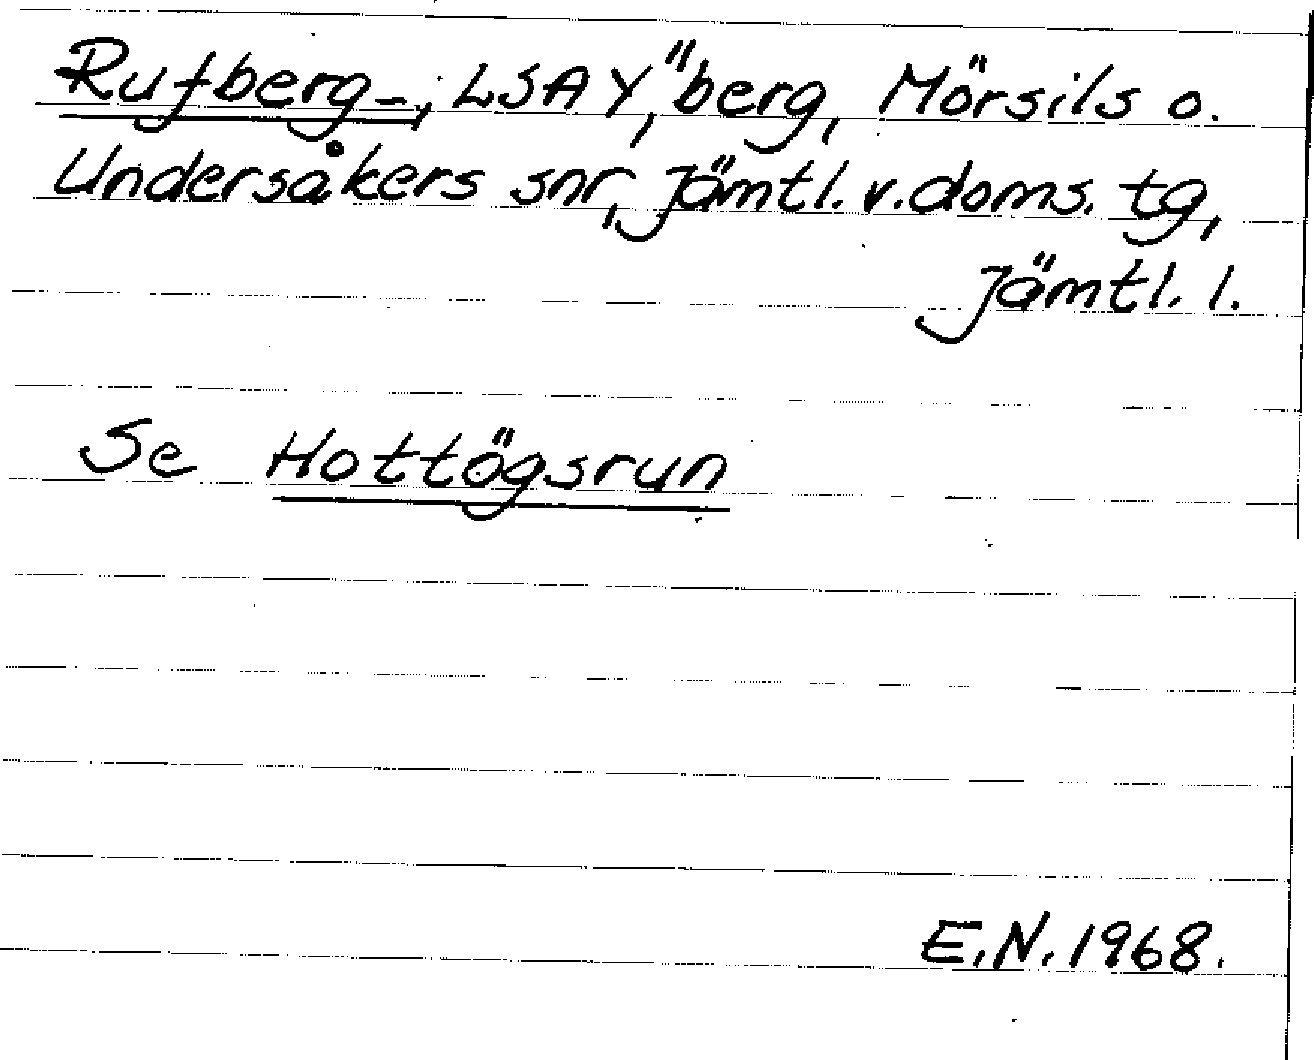 Rufberg-, LSA Y, "berg, Mörsils o.
Undersåkers snr, Jämtl. v. doms. tg,
Jämtl. l.
Se Hottögsrun
E.N. 1968.